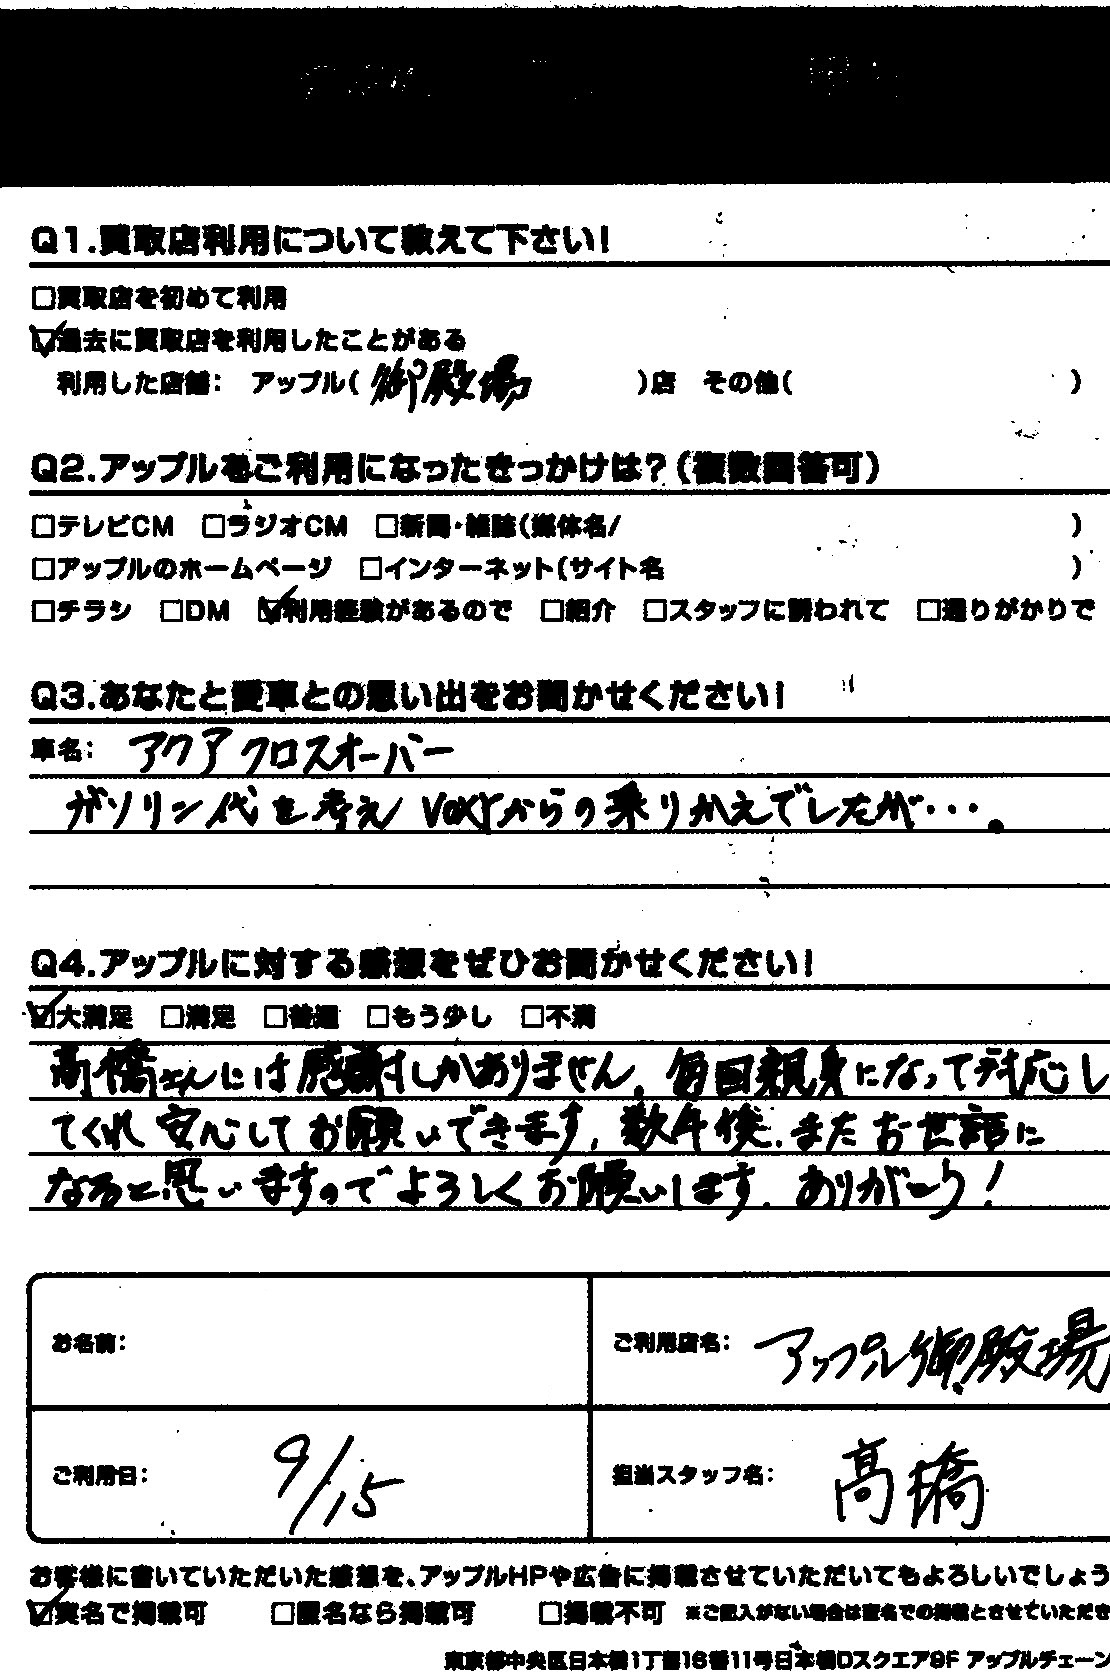 Q1.買取店利用について教えて下さい!
□買取店を初めて利用
☑過去に買取店を利用したことがある
利用した店舗: アップル(御殿場)店 その他( )
Q2.アップルをご利用になったきっかけは?(複数回答可)
□テレビCM □ラジオCM □新聞・雑誌(媒体名/ )
□アップルのホームページ □インターネット(サイト名 )
□チラシ □DM ☑利用経験があるので □紹介 □スタッフに誘われて □通りがかりで
Q3.あなたと愛車との思い出をお聞かせください!
車名: アクア クロスオーバー
ガソリン代を考え VOXYからの乗りかえでしたが・・・。
Q4.アップルに対する感想をぜひお聞かせください!
☑大満足 □満足 □普通 □もう少し □不満
高橋さんには感謝しかありません。毎回親身になって対応し
てくれ安心してお願いできます。数年後、またお世話に
なると思いますのでよろしくお願いします。ありがとう!
お名前:
ご利用店名: アップル御殿場
ご利用日: 9/15
担当スタッフ名: 高橋
お客様に書いていただいた感想を、アップルHPや広告に掲載させていただいてもよろしいでしょう
☑実名で掲載可 □匿名なら掲載可 □掲載不可 ※ご記入がない場合は実名での掲載とさせていただき
東京都中央区日本橋1丁目16番11号日本橋Dスクエア9F アップルチェーン